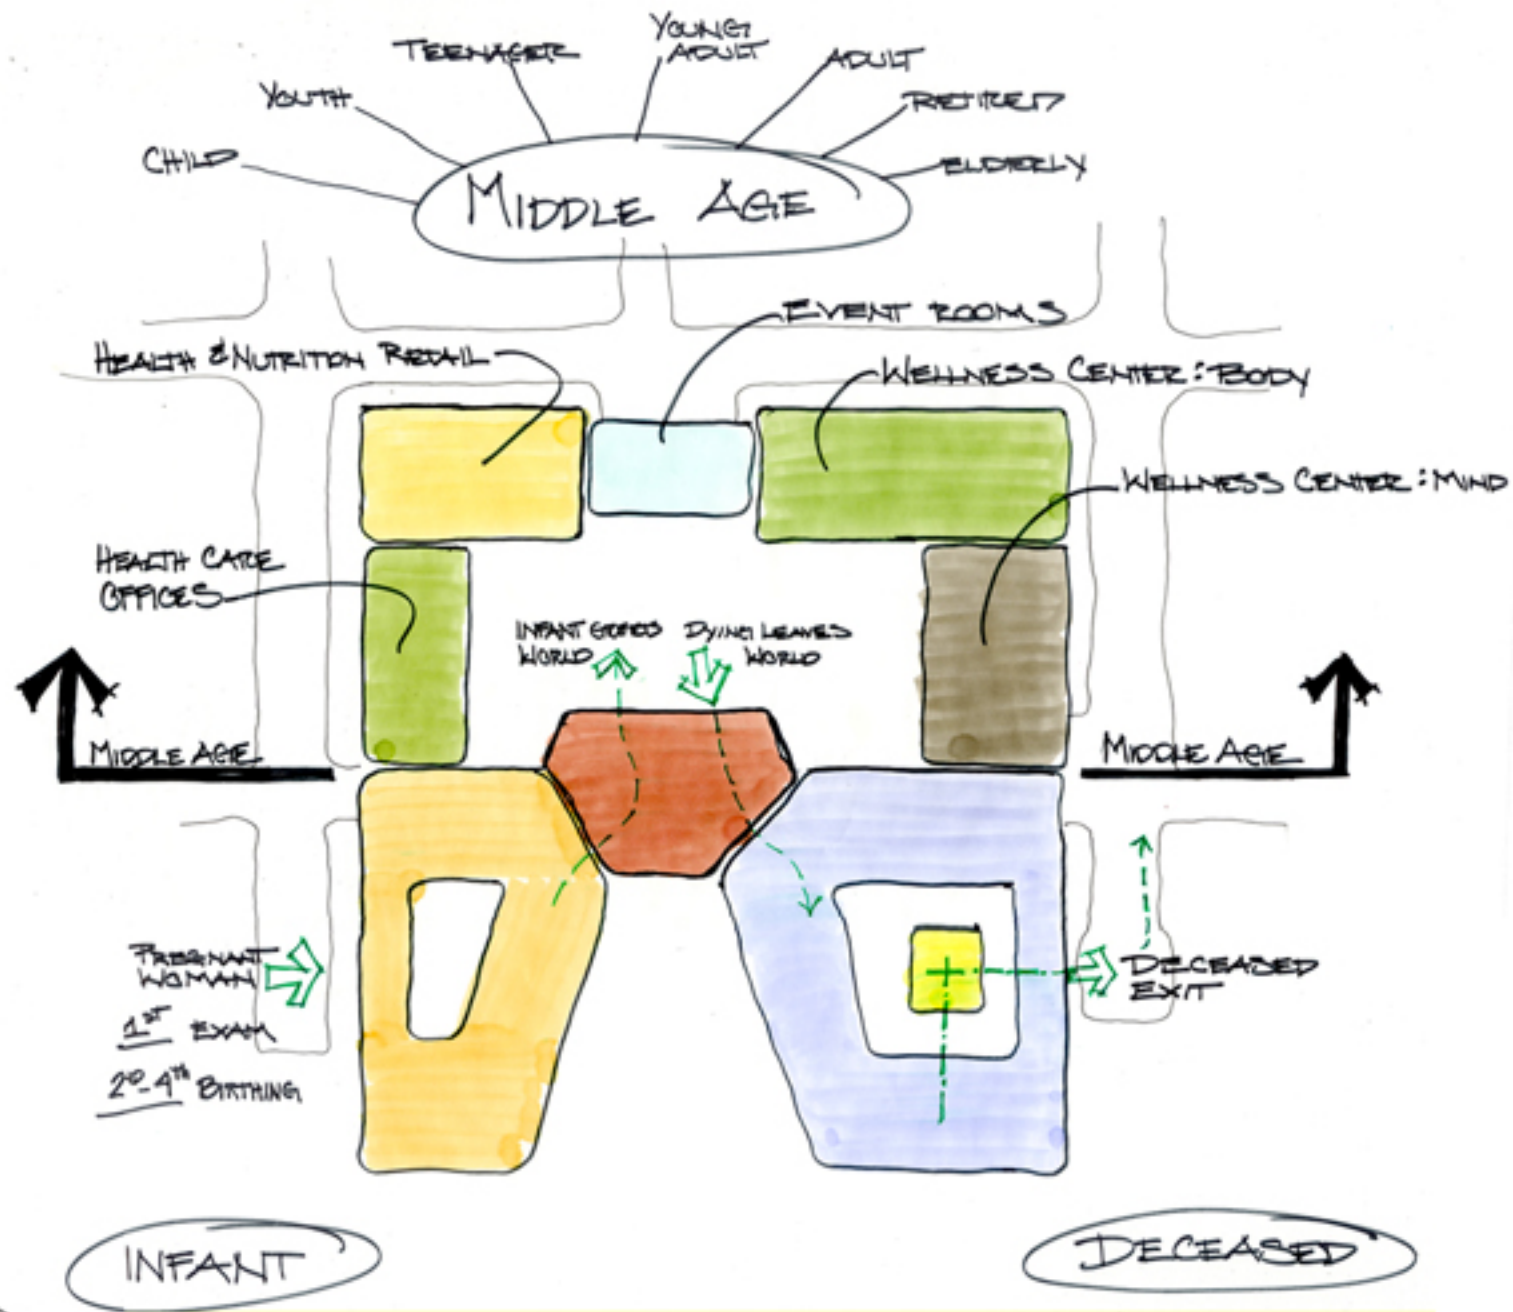 YOUNG
ADULT
TEENAGER
ADULT
YOUTH
RETIRED
CHILD
ELDERLY
MIDDLE AGE
EVENT ROOMS
HEALTH & NUTRITION RETAIL
WELLNESS CENTER: BODY
WELLNESS CENTER: MIND
HEALTH CARE
OFFICES
INFANT GOES
WORLD
DYING LEAVES
WORLD
MIDDLE AGE
MIDDLE AGE
PREGNANT
WOMAN
1ST EXAM
2D-4TH BIRTHING
DECEASED
EXIT
INFANT
DECEASED